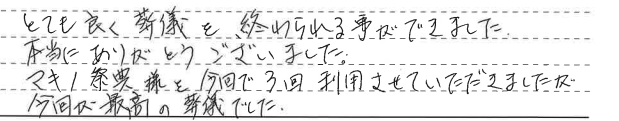 とても良く葬儀を終わられる事ができました.
本当にありがとうございました。
マキノ祭典様を今回で3回利用させていただきましたが
今回が最高の葬儀でした.